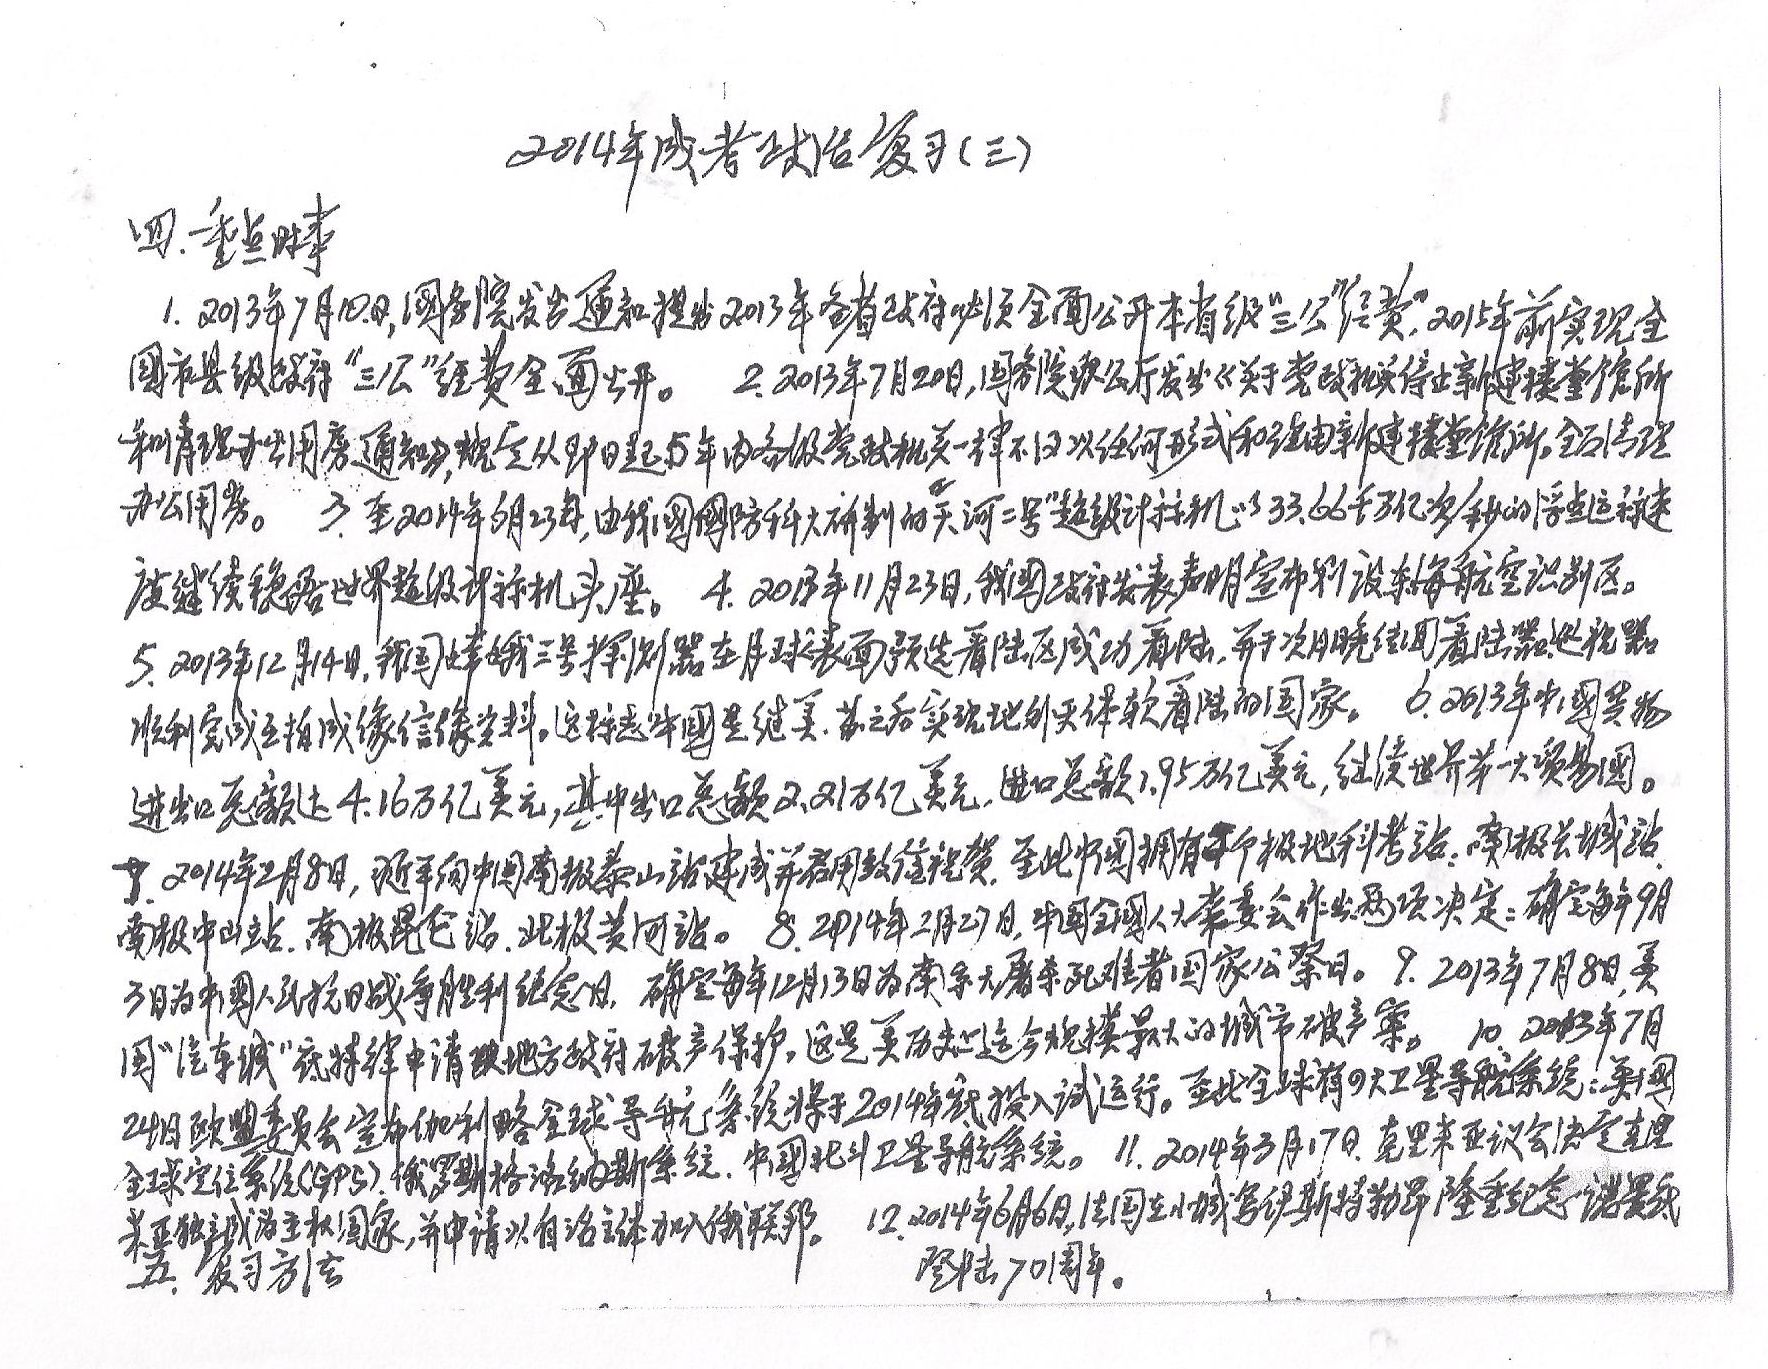 2014年成考政治复习(三)
四.重点时事
1. 2013年7月10日,国务院发出通知提出2013年各省政府必须全面公开本省级“三公”经费,2015年前实现全
国市县级政府“三公”经费全面公开。 2. 2013年7月20日,国务院办公厅发出《关于党政机关停止新建楼堂馆所
和清理办公用房通知》,规定从即日起,5年内各级党政机关一律不得以任何形式和理由新建楼堂馆所。全面清理
办公用房。 3. 至2014年6月23日,由我国国防科大研制的“天河二号”超级计算机以33.66千万亿次/秒的浮点运算速
度继续稳居世界超级计算机头座。 4. 2013年11月23日,我国政府发表声明宣布划设东海航空识别区。
5. 2013年12月14日,我国嫦娥三号探测器在月球表面预选着陆区成功着陆,并于次日晚结同着陆器.巡视器
顺利完成互拍成像信像资料。这标志中国是继美.苏之后实现地外天体软着陆的国家。 6. 2013年中国货物
进出口总额达4.16万亿美元,其中出口总额2.21万亿美元.进口总额1.95万亿美元,继续世界第一大贸易国。
7. 2014年2月8日,习近平向中国南极泰山站建成并启用致信祝贺.至此中国拥有 个极地科考站:南极长城站.
南极中山站.南极昆仑站.北极黄河站。 8. 2014年2月27日,中国全国人大常委会作出两项决定:确定每年9月
3日为中国人民抗日战争胜利纪念日,确定每年12月13日为南京大屠杀死难者国家公祭日。 9. 2013年7月8日,美
国“汽车城”底特律申请 地方政府破产保护,这是美历史上迄今规模最大的城市破产案。 10. 2013年7月
24日欧盟委员会宣布伽利略全球导航系统将于2014年底投入试运行。至此全球有4大卫星导航系统:美国
全球定位系统(GPS).俄罗斯格洛纳斯系统.中国北斗卫星导航系统。 11. 2014年3月17日.克里米亚议会决定克里
米亚独立成为主权国家,并申请以自治主体加入俄联邦。 12. 2014年6月6日,法国在小城乌伊斯特勒昂隆重纪念诺曼底
五.复习方法 登陆70周年。